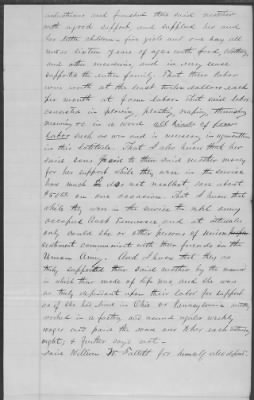 industrious and furnished their said mother
with a good support, and supplied her and
her little children, five girls and one boy all
under sixteen years of age with food, clothing
and other necessaries, and in every sense
supported the entire family. That their labor
were worth at the least twelve dollars each
per month at farm labor. That said labor
consisted in plowing, planting, reaping, threshing
mowing &c in a word all kinds of farm
Labor such as was and is necessary in agriculture
in this latitude. That I also know that her
said sons gave to their said mother money
for her support while they were in the service
how much I do not recollect save about
on one occasion. That I know that
while they were in the service the rebel army
occupied East Tennessee and at intervals
only could she or other persons of Union
sentiment communicate with their friends in the
Union Army. And I know that they as
truly supported their said mother by the manner
in which their mode of life was and she was
as truly dependent upon their labor for support
as if she had lived in Ohio or Pennsylvania and they
worked in a factory and earned regular weekly
wages and paid the same over to her each Saturday
night, & further says not.
Said William W. for himself also deposes